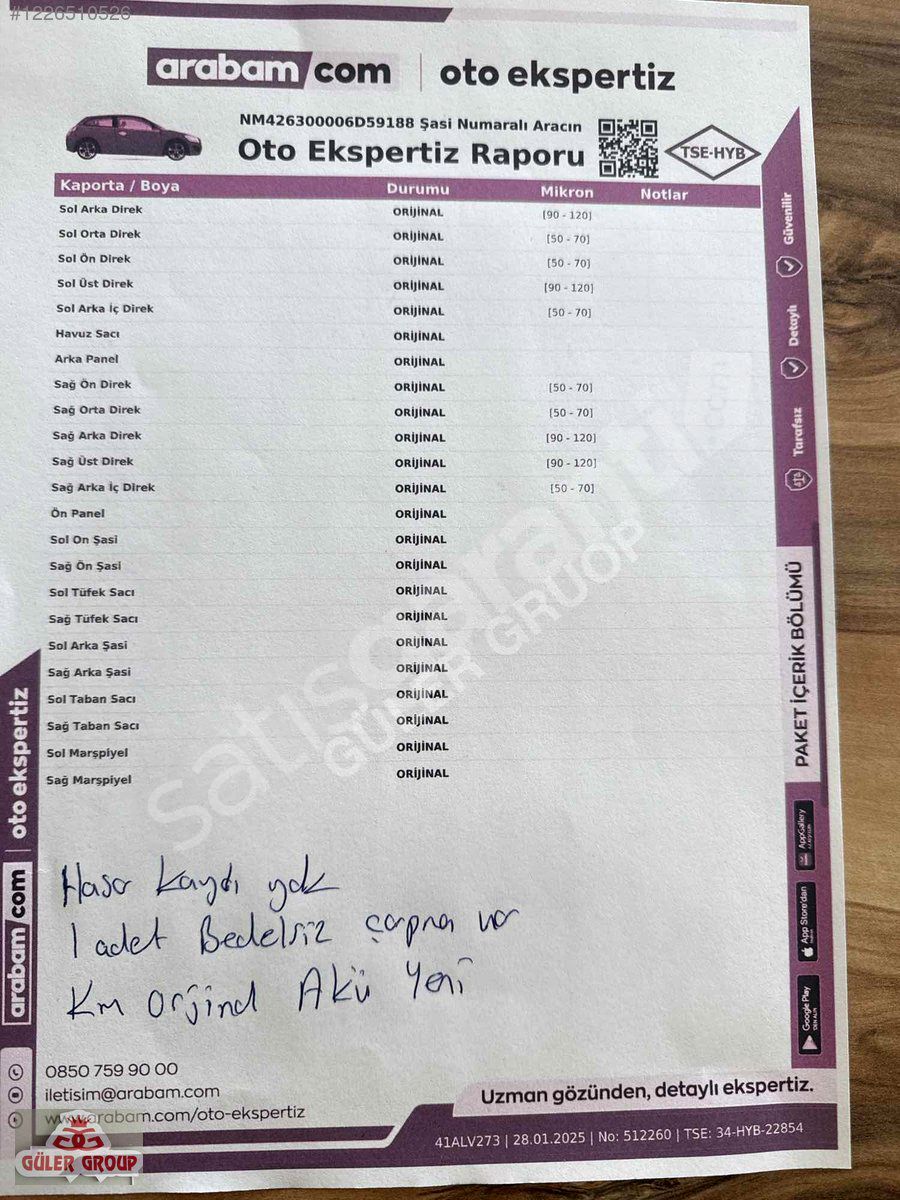 #1226510526
arabam com | oto ekspertiz
NM426300006D59188 Şasi Numaralı Aracın
Oto Ekspertiz Raporu
TSE-HYB
Kaporta / Boya Durumu Mikron Notlar
Sol Arka Direk ORİJİNAL [90 - 120]
Sol Orta Direk ORİJİNAL [50 - 70]
Sol Ön Direk ORİJİNAL [50 - 70]
Sol Üst Direk ORİJİNAL [90 - 120]
Sol Arka İç Direk ORİJİNAL [50 - 70]
Havuz Sacı ORİJİNAL
Arka Panel ORİJİNAL
Sağ Ön Direk ORİJİNAL [50 - 70]
Sağ Orta Direk ORİJİNAL [50 - 70]
Sağ Arka Direk ORİJİNAL [90 - 120]
Sağ Üst Direk ORİJİNAL [90 - 120]
Sağ Arka İç Direk ORİJİNAL [50 - 70]
Ön Panel ORİJİNAL
Sol On Şasi ORİJİNAL
Sağ Ön Şasi ORİJİNAL
Sol Tüfek Sacı ORİJİNAL
Sağ Tüfek Sacı ORİJİNAL
Sol Arka Şasi ORİJİNAL
Sağ Arka Şasi ORİJİNAL
Sol Taban Sacı ORİJİNAL
Sağ Taban Sacı ORİJİNAL
Sol Marşpiyel ORİJİNAL
Sağ Marşpiyel ORİJİNAL
GÜLER GRUOP
Hasar kaydı yok
1 adet Bedelsiz çarpma var
Km orjinal Akü Yeni
0850 759 90 00
iletisim@arabam.com
www.arabam.com/oto-ekspertiz
Uzman gözünden, detaylı ekspertiz.
41ALV273 | 28.01.2025 | No: 512260 | TSE: 34-HYB-22854
GÜLER GROUP
arabam com | oto ekspertiz
Güvenilir
Detaylı
Tarafsız
PAKET İÇERİK BÖLÜMÜ
AppGallery
App Store'dan
Google Play